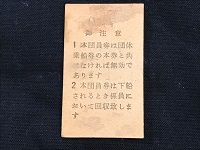 御注意
1 本団員券は団体
乗船券の本券と共
になければ無効で
あります
2 本団員券は下船
されるとき係員に
おいて回収致しま
す